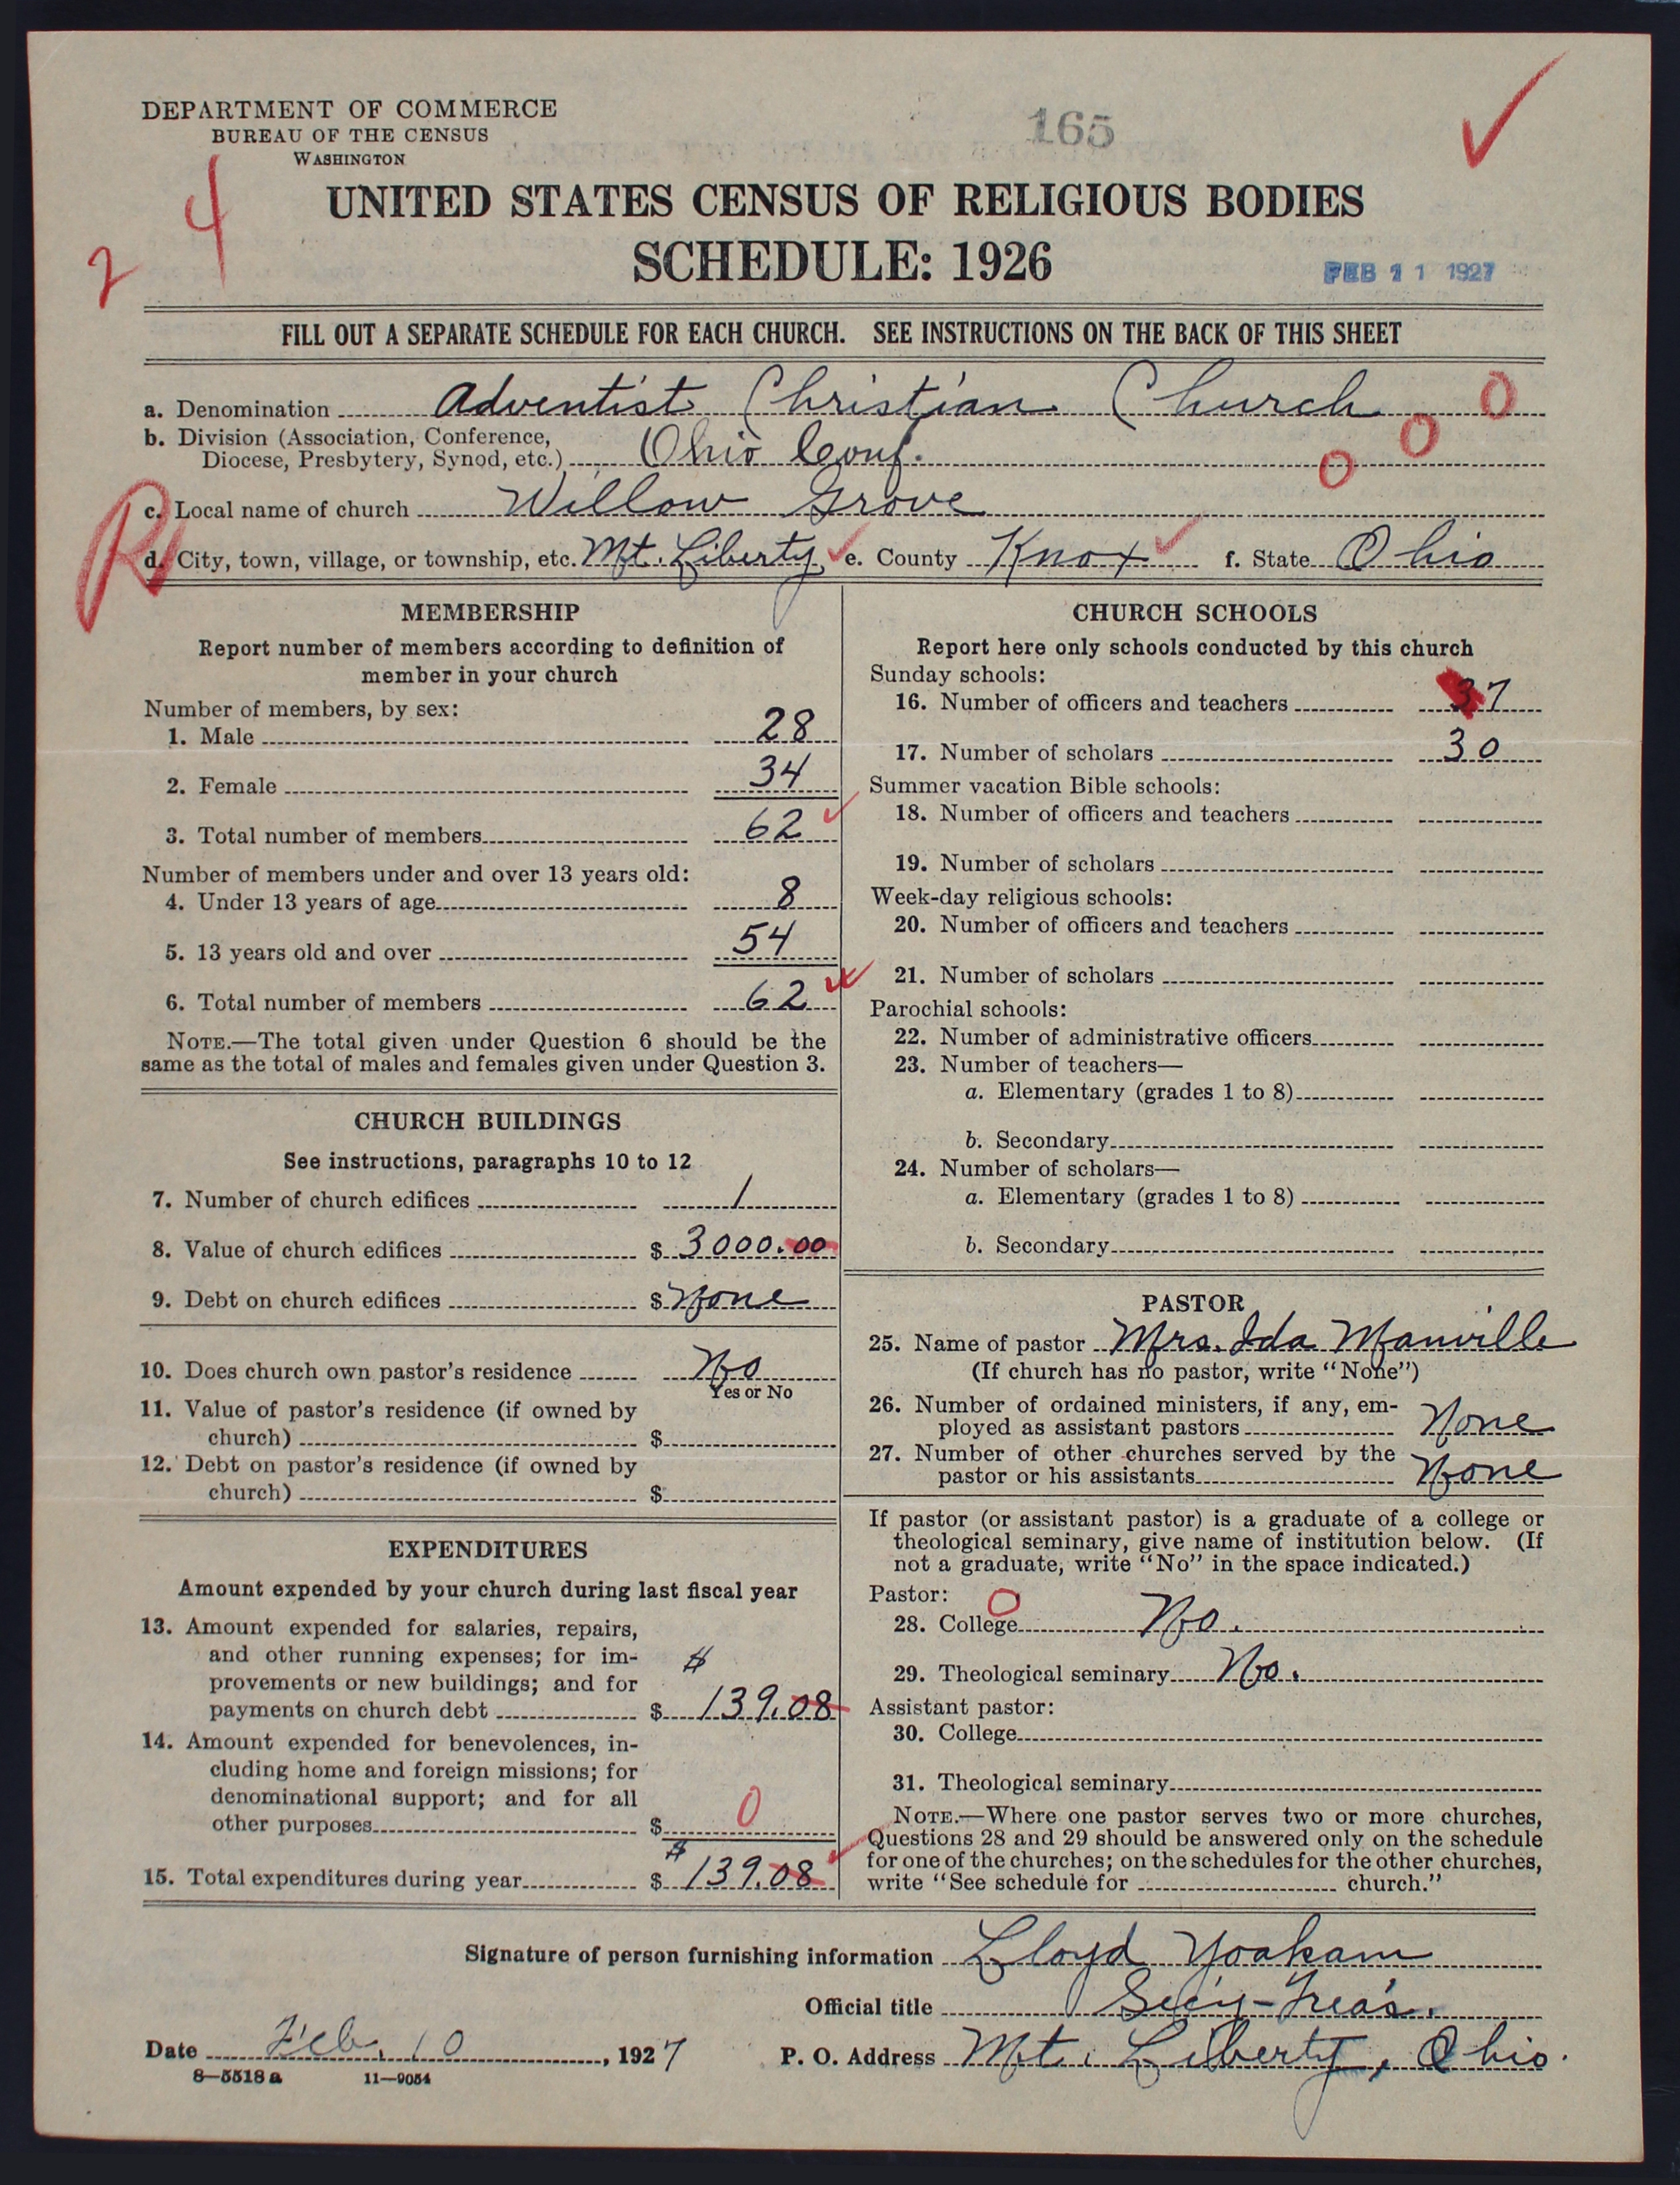 DEPARTMENT OF COMMERCE
BUREAU OF THE CENSUS
WASHINGTON
165
4
2
UNITED STATES CENSUS OF RELIGIOUS BODIES
SCHEDULE: 1926
FEB 11 1927
FILL OUT A SEPARATE SCHEDULE FOR EACH CHURCH. SEE INSTRUCTIONS ON THE BACK OF THIS SHEET
a. Denomination Adventist Christian Church 0
b. Division (Association, Conference, 0
Diocese, Presbytery, Synod, etc.) Ohio Conf. 0
R
c. Local name of church Willow Grove
d. City, town, village, or township, etc. Mt. Liberty, e. County Knox f. State Ohio
MEMBERSHIP
Report number of members according to definition of
member in your church
Number of members, by sex:
1. Male 28
2. Female 34
3. Total number of members 62
Number of members under and over 13 years old:
4. Under 13 years of age 8
5. 13 years old and over 54
6. Total number of members 62
NOTE.—The total given under Question 6 should be the
same as the total of males and females given under Question 3.
CHURCH BUILDINGS
See instructions, paragraphs 10 to 12
7. Number of church edifices 1
8. Value of church edifices $ 3000.00
9. Debt on church edifices $ None
10. Does church own pastor's residence No
Yes or No
11. Value of pastor's residence (if owned by
church) $
12. Debt on pastor's residence (if owned by
church) $
EXPENDITURES
Amount expended by your church during last fiscal year
13. Amount expended for salaries, repairs,
and other running expenses; for im-
provements or new buildings; and for $
payments on church debt $ 139.08
14. Amount expended for benevolences, in-
cluding home and foreign missions; for
denominational support; and for all
other purposes $ 0
$
15. Total expenditures during year $ 139.08
CHURCH SCHOOLS
Report here only schools conducted by this church
Sunday schools:
16. Number of officers and teachers 37
17. Number of scholars 30
Summer vacation Bible schools:
18. Number of officers and teachers
19. Number of scholars
Week-day religious schools:
20. Number of officers and teachers
21. Number of scholars
Parochial schools:
22. Number of administrative officers
23. Number of teachers—
a. Elementary (grades 1 to 8)
b. Secondary
24. Number of scholars—
a. Elementary (grades 1 to 8)
b. Secondary
PASTOR
25. Name of pastor Mrs. Ida Manville
(If church has no pastor, write "None")
26. Number of ordained ministers, if any, em-
ployed as assistant pastors None
27. Number of other churches served by the
pastor or his assistants None
If pastor (or assistant pastor) is a graduate of a college or
theological seminary, give name of institution below. (If
not a graduate, write "No" in the space indicated.)
Pastor: 0
28. College No.
29. Theological seminary No.
Assistant pastor:
30. College
31. Theological seminary
NOTE.—Where one pastor serves two or more churches,
Questions 28 and 29 should be answered only on the schedule
for one of the churches; on the schedules for the other churches,
write "See schedule for church."
Signature of person furnishing information Lloyd Yoakam
Official title Sec'y-Treas.
Date Feb. 10, 1927 P. O. Address Mt. Liberty, Ohio.
8—5518 a 11—9054